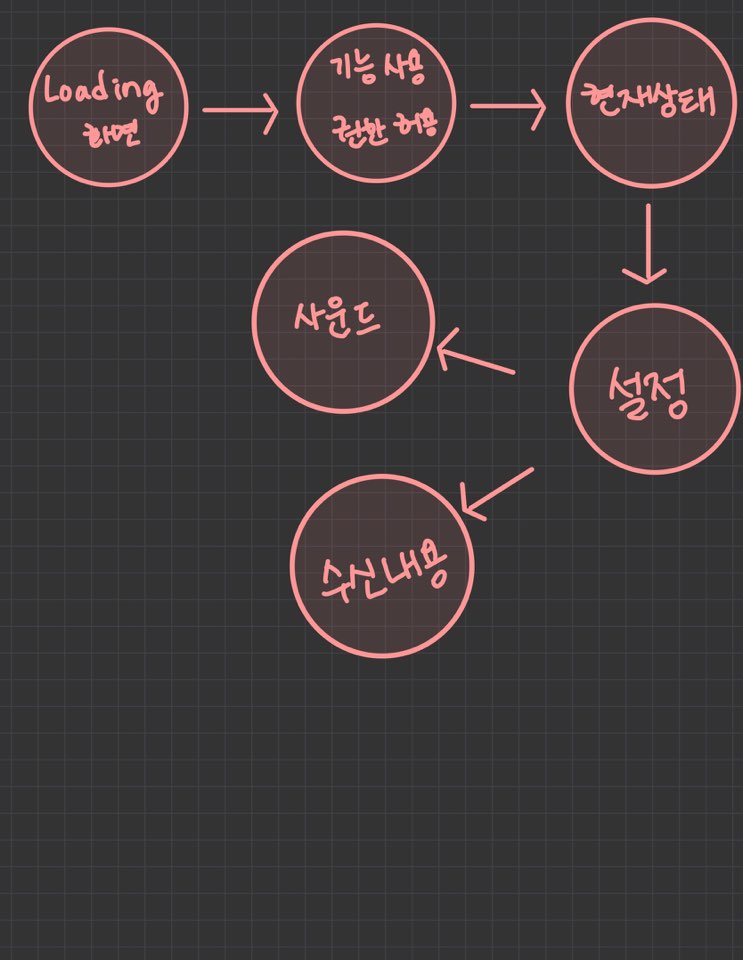 Loading
화면
기능 사용
권한 허용
현재상태
사운드
설정
수신내용